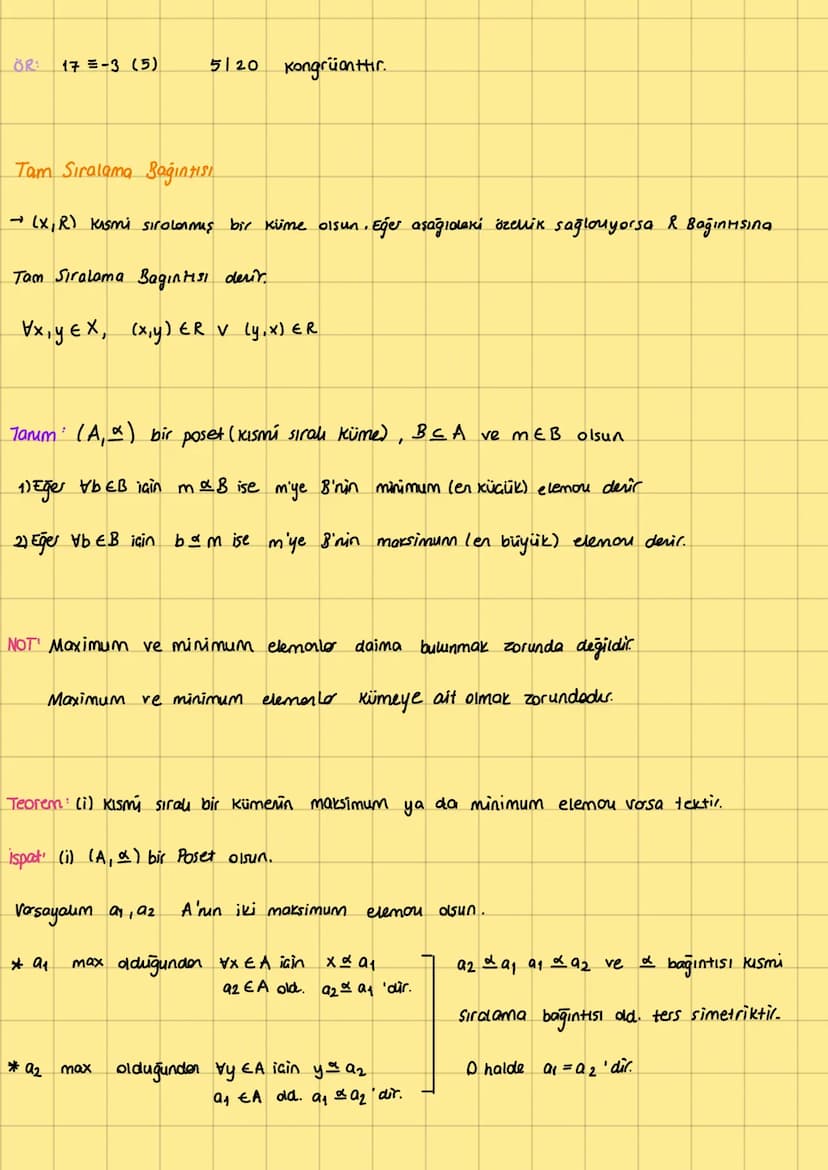 ÖR: 17 ≡ -3 (5) 5|20 kongrüanttır.
Tam Sıralama Bağıntısı
→ (X,R) kısmi sıralanmış bir küme olsun. Eğer aşağıdaki özellik sağlanıyorsa R Bağıntısına
Tam Sıralama Bagıntısı denir.
∀x,y ∈ X, (x,y) ∈ R ∨ (y,x) ∈ R
Tanım: (A,⪯) bir poset (kısmi sıralı küme), B ⊆ A ve m ∈ B olsun
1) Eğer ∀b ∈ B için m ⪯ B ise m'ye B'nin minimum (en küçük) elemanı denir
2) Eğer ∀b ∈ B için b ⪯ m ise m'ye B'nin maksimum (en büyük) elemanı denir.
NOT: Maximum ve minimum elemanlar daima bulunmak zorunda değildir.
Maximum ve minimum elemanlar kümeye ait olmak zorundadır.
Teorem: (i) Kısmi sıralı bir kümenin maksimum ya da minimum elemanı varsa tektir.
İspat: (i) (A,⪯) bir Poset olsun.
Varsayalım a1, a2 A'nın iki maksimum elemanı olsun.
* a1 max olduğundan ∀x ∈ A için x ⪯ a1
a2 ∈ A old. a2 ⪯ a1 'dir.
* a2 max olduğundan ∀y ∈ A için y ⪯ a2
a1 ∈ A old. a1 ⪯ a2 'dir.
a2 ⪯ a1 a1 ⪯ a2 ve ⪯ bağıntısı kısmi
sıralama bağıntısı old. ters simetriktir.
O halde a1 = a2 'dir.